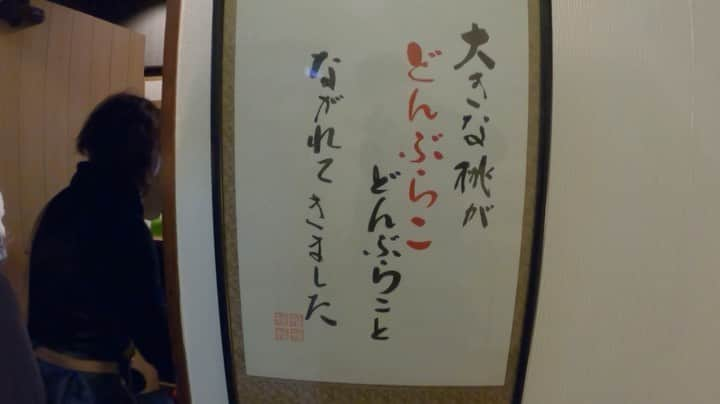 大きな桃が
どんぶらこ
どんぶらこと
ながれてきました